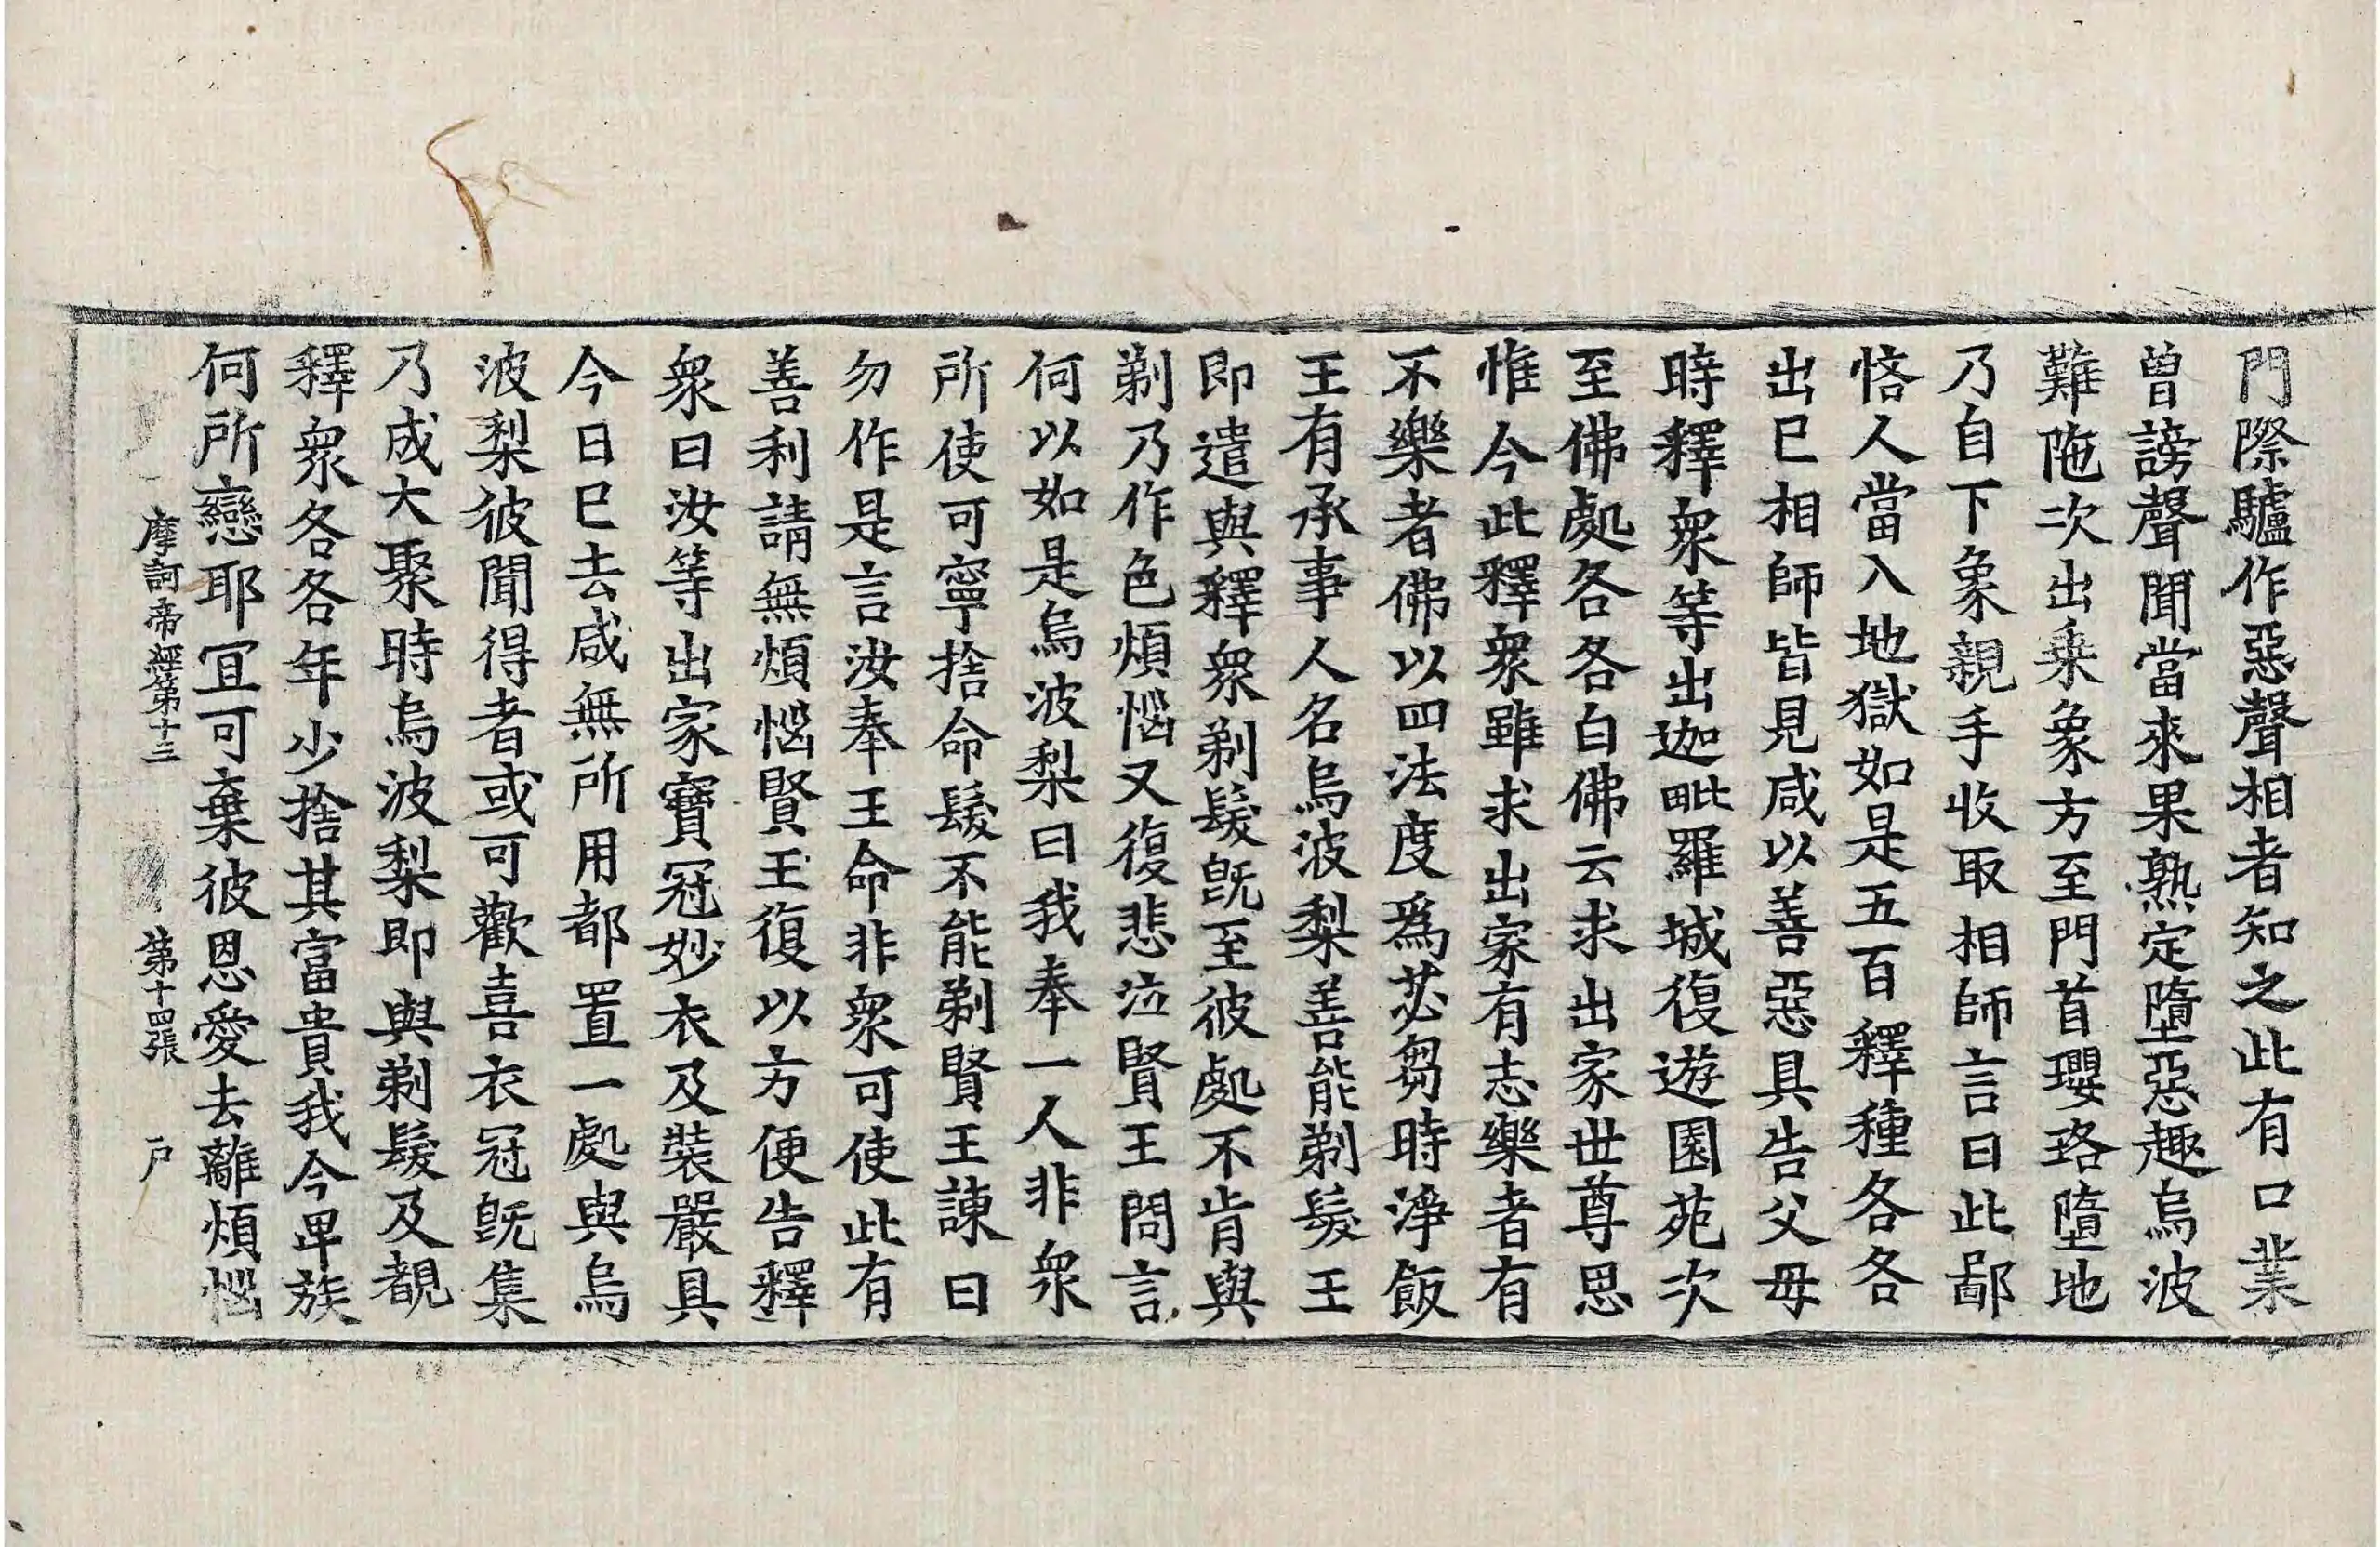 門際驢作惡聲相者知之此有口業
曾謗聲聞當來果熟定墮惡趣烏波
難陁次出乗象方至門首瓔珞墮地
乃自下象親手收取相師言曰此鄙
悋人當入地獄如是五百釋種各各
出已相師皆見咸以善惡具告父母
時釋衆等出迦毗羅城復遊園苑次
至佛處各各白佛云求出家世尊思
惟今此釋衆雖求出家有志樂者有
不樂者佛以四法度爲苾芻時淨飯
王有承事人名烏波梨善能剃髮王
即遣與釋衆剃髮旣至彼處不肯與
剃乃作色煩惱又復悲泣賢王問言
何以如是烏波梨曰我奉一人非衆
所使可寧捨命髮不能剃賢王諫曰
勿作是言汝奉王命非衆可使此有
善利請無煩惱賢王復以方便告釋
衆曰汝等出家寶冠妙衣及裝嚴具
今日已去咸無所用都置一處與烏
波梨彼聞得者或可歡喜衣冠旣集
乃成大聚時烏波梨即與剃髮及覩
釋衆各各年少捨其富貴我今卑族
何所戀耶宜可棄彼恩愛去離煩惱
摩訶帝經第十三 第十四張 户